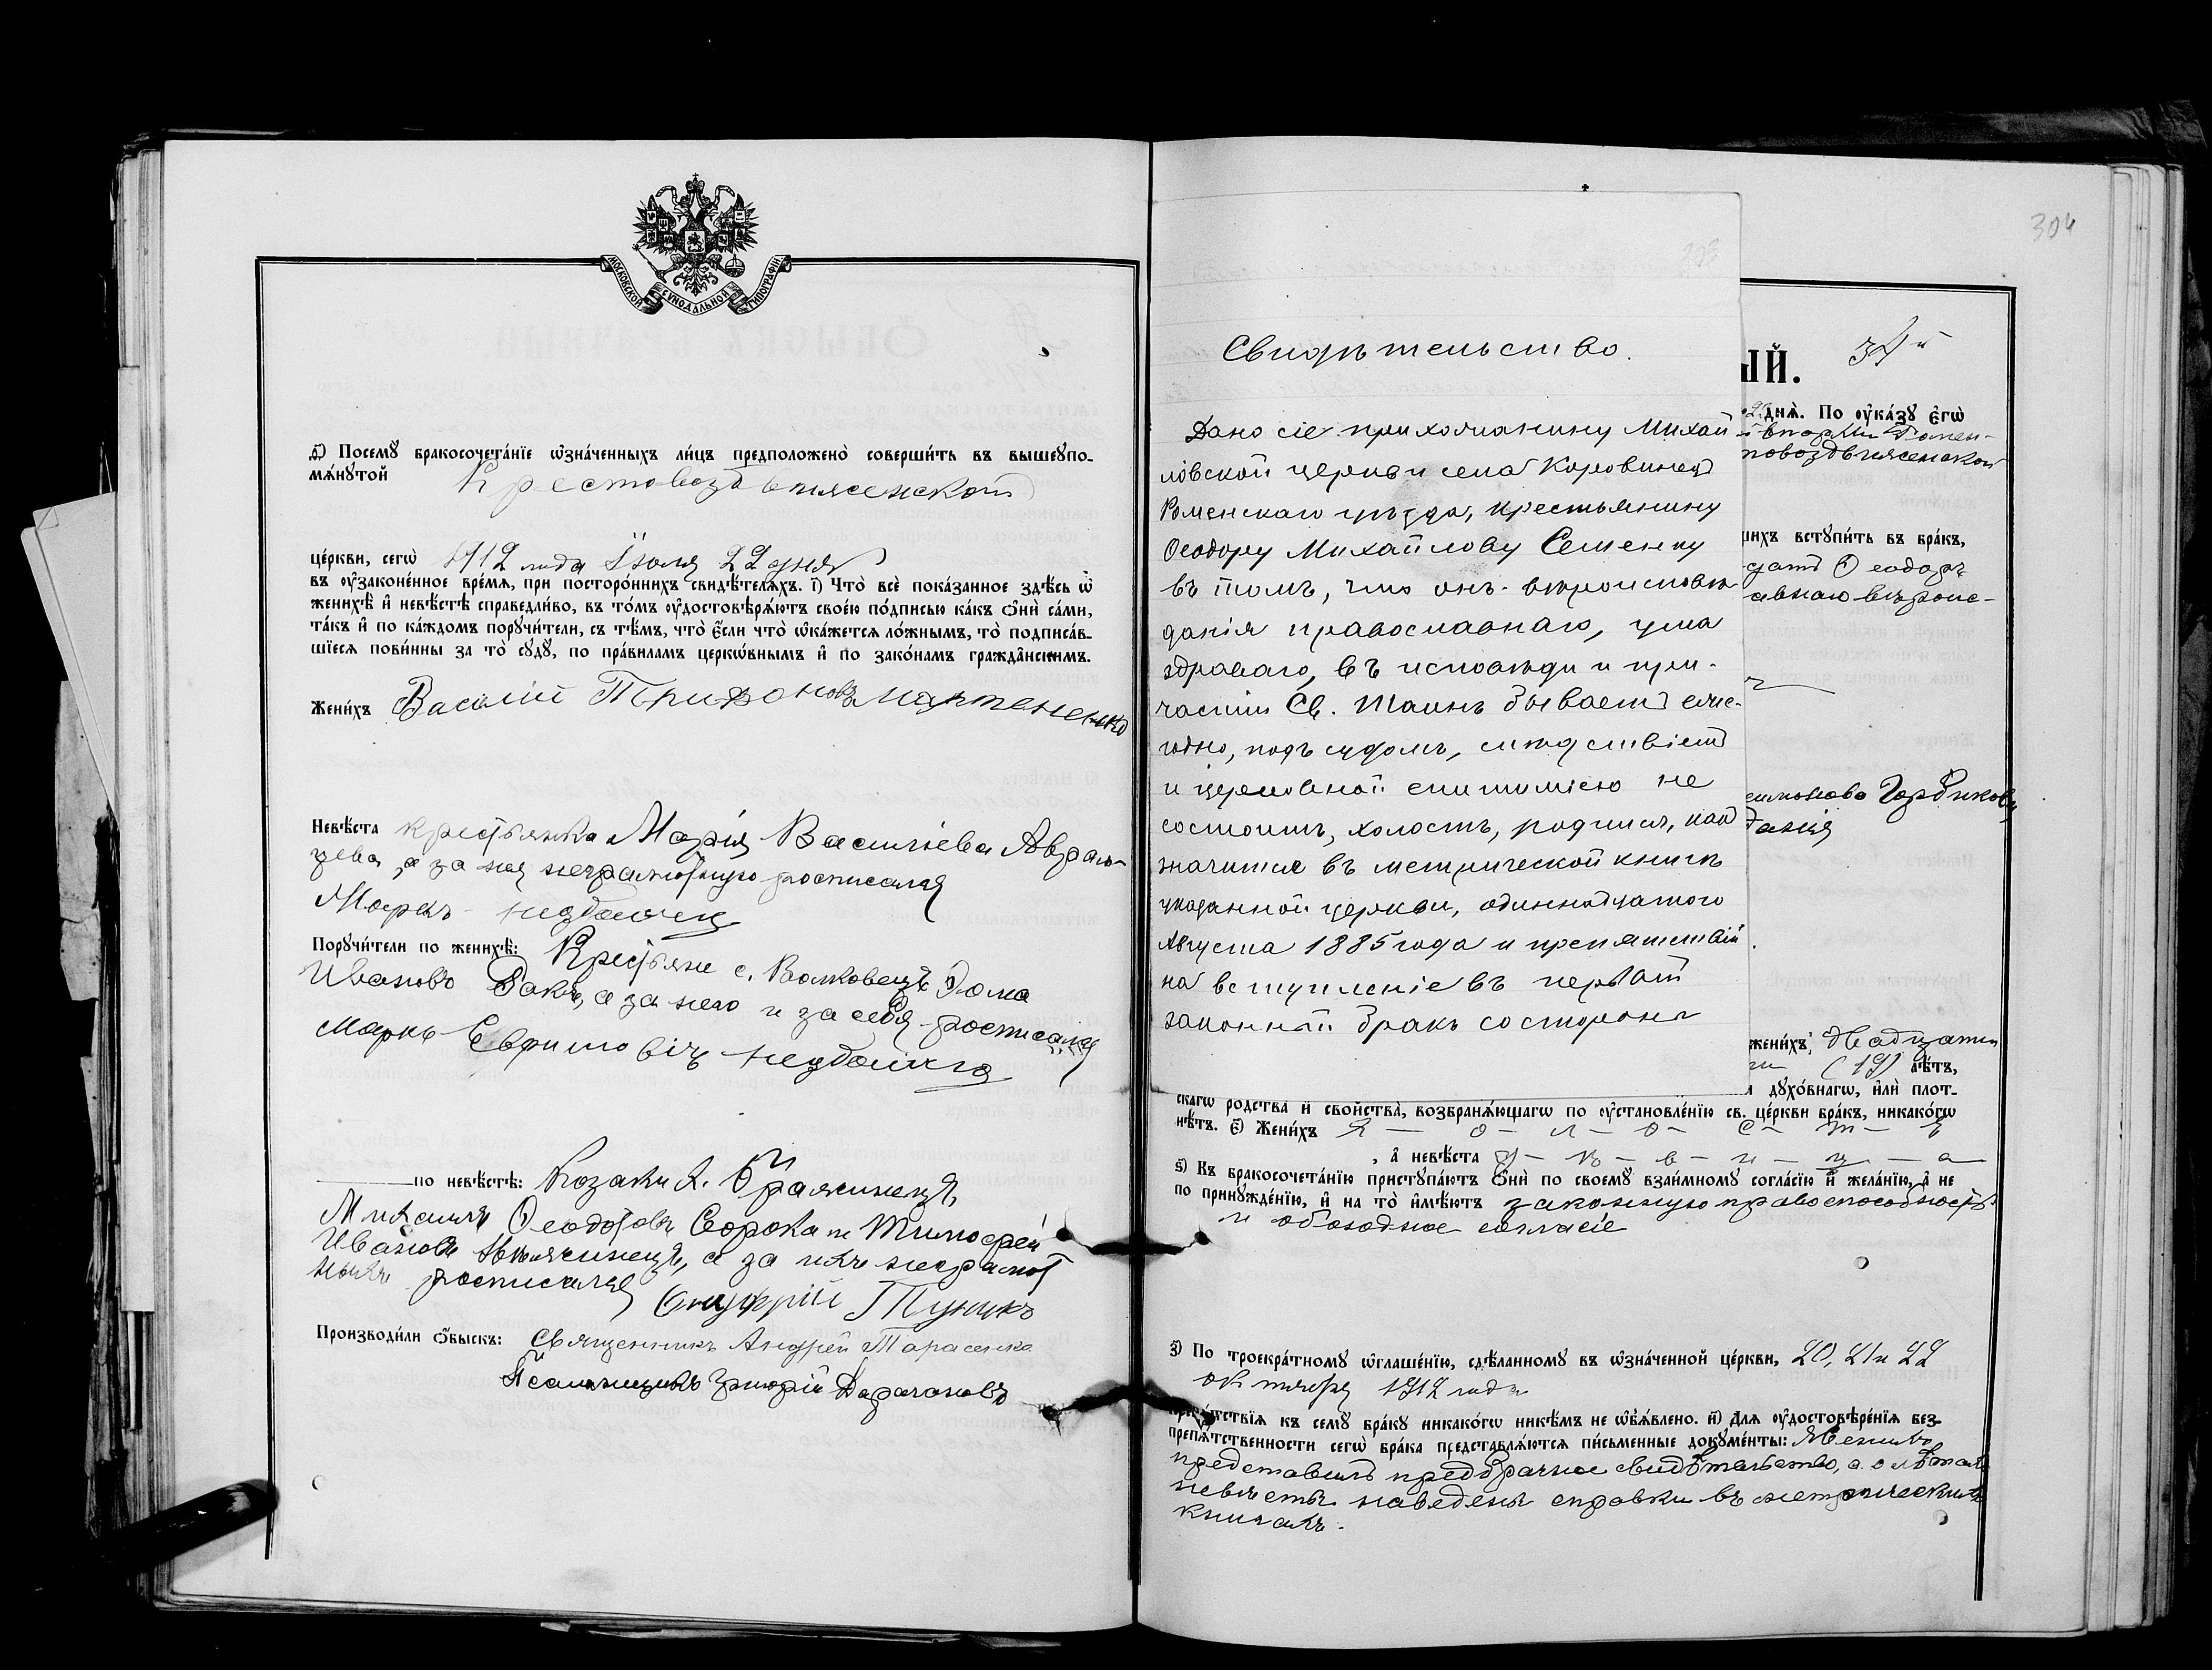 МОСКОВСКОЙ СУНОДАЛЬНОЙ ТИПОГРАФІИ
д҃) Посемꙋ бракосочета́нїе ѡ҆зна́ченныхъ ли́цъ предположено̀ соверши́ть въ вышеꙋпо-
мѧ́нꙋтой Крестовоздвиженской
це́ркви, сегѡ̀ 1912 года Іюля 22 дня
въ ᲂу҆законе́нное вре́мѧ, при посторо́ннихъ свидѣ́телѧхъ. і҃) Что̀ всѐ пока́занное здѣ́сь ѡ҆
женихѣ̀ и҆ невѣ́стѣ справедли́во, въ то́мъ ᲂу҆достовѣрѧ́ютъ свое́ю по́дписью ка́къ ѻ҆нѝ са́ми,
та́къ и҆ по ка́ждомъ порꙋчи́тели, съ тѣ́мъ, что̀ є҆́сли что̀ ѡ҆ка́жетсѧ ло́жнымъ, то̀ подписа́в-
шїесѧ пови́нны за то̀ сꙋдꙋ̀, по пра́виламъ церко́внымъ и҆ по зако́намъ гражда̑нскимъ.
Жени́хъ Василій Трифоновъ Мартененко
Невѣ́ста крестьянка Марія Васильева Аврам-
цева, а за нея неграмотную росписался
Маркъ
Порꙋчи́тели по женихѣ̀: Крестьяне с. Волковецъ Ѳома
Ивановъ а за него и за себя росписался
Маркъ Евфимовичъ
по невѣ́стѣ: Козаки х. Бражинецъ,
Михаилъ Ѳеодотовъ Сорока и Тимофей
Ивановъ а за нихъ неграмот
ныхъ росписался Онуфрій Туникъ
Производи́ли ѻ҆́быскъ: Священникъ Андрей Тарасенко
Псаломщикъ Григорій
304
Свидѣтельство.
Дано сіе прихожанину Михай
ловской церкви села Коровинецъ
Роменскаго уѣзда, крестьянину
Ѳеодору Михайлову Семенку
въ томъ, что онъ вѣроисповѣ-
данія православнаго, ума
здраваго, въ исповѣди и при-
частіи Св. Таинъ бываетъ еже-
годно, подъ судомъ, слѣдствіемъ
и церковной епитиміею не
состоитъ, холостъ, родился, какъ
значится въ метрической книгѣ
указанной церкви, одиннадцатого
Августа 1885 года и препятствій
на вступленіе въ первый
законный бракъ со стороны
ЫЙ. 34й
дня̀. По ᲂу҆ка́зꙋ є҆гѡ̀
повоздвиженской
щихъ встꙋпи́ть въ бра́къ,
Ѳеодоръ
авнаго вѣроис-
Горбикову
данія
жени́хъ,
(19) лѣ́тъ,
дꙋхо́внагѡ, и҆лѝ плот-
скагѡ родства̀ и҆ свойства̀, возбранѧ́ющагѡ по ᲂу҆становле́нїю св. це́ркви бра́къ, никако́гѡ
нѣ́тъ. є҃) Жени́хъ Х — о — л — о — с — т — ъ
, а҆ невѣ́ста д — ѣ — в — и — ц — а
ѕ҃) Къ бракосочета́нїю пристꙋпа́ютъ ѻ҆нѝ по своемꙋ̀ взаи́мномꙋ согла́сїю и҆ жела́нїю, а҆ не
по принꙋжде́нїю, и҆ на то̀ и҆мѣ́ютъ законную правоспособность
и обоюдное согласіе
з҃) По троекра́тномꙋ ѡ҆глаше́нїю, сдѣ́ланномꙋ въ ѡ҆зна́ченной це́ркви, 20, 21 и 22
октября 1912 года
препѧ́тствїѧ къ семꙋ̀ бра́кꙋ никако́гѡ никѣ́мъ не ѡ҆б̾ѧ́влено. и҃) Длѧ ᲂу҆достовѣре́нїѧ без-
препѧ́тственности сегѡ̀ бра́ка представлѧ́ютсѧ пи́сьменные докꙋме́нты: Женихъ
представилъ предбрачное свидѣтельство, а о лѣтахъ
невѣсты наведены справки въ метрическихъ
книгахъ.